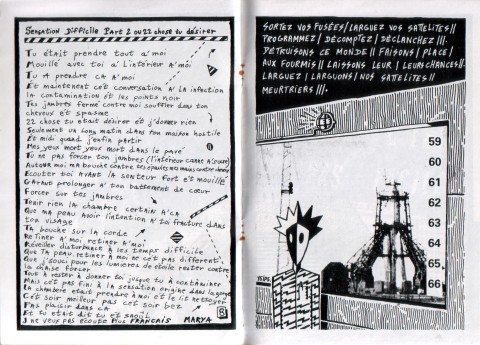 Sensation Difficile Part 2 ou 22 chose tu désirer
Tu était prendre tout a' moi
Mouillé avec toi a' l'intérieur a' moi
Tu a prendre ca a' moi
Et maintenent cet conversation a' la infection
la contamination et les points noir
Tes jambres fermé contre moi souffler dans ton
cheveux et spasme
22 chose tu était désirer et j'donner rien
Seulement un long matin dans ton maison hostile
Et midi quand j'enfin partir
Mes yeux mort yeux mort dans le pavé
Tu ne pas forcer ton jambres (l'intérieur
Autour moi ma bouche contre
Ecouter toi avant la senteur fort et mouillé
Garaud prolonger a' ton battement de cœur
Forcer sur tes jambres
Tenir rien la chambre certain a' ca
Que ma peau avoir l'intention a' toi fracture dans
ton visage
Ta bouche sur la corde
Retiner a' moi retiner a' moi
Réveiller disturbance a' les temps difficile
Que ta peau retiner a' moi ne cet pas different
Que j'souci pour les lumières de étoile rester contre
la chaise forcer
Tout a rester a donner toi jusque tu a contaminer
Mais cet pas fini a' la sensation origine dans la gorge
En chamberie etait prendre a' moi et le lit nettoyer
Cet soir meilleur pas cet soir bez
Pas plaisir dans ca
Et tu etait dit tu et saoul
J ne veux pas ecoute plus français MARYA
8
SORTEZ VOS FUSÉES/LARGUEZ VOS SATTELITES//
PROGRAMMEZ/DECOMPTEZ/DÉCLANCHEZ///.
DÉTRUISONS CE MONDE // FAISONS/PLACE/
AUX FOURMIS // LAISSONS LEUR/LEURS CHANCES//.
LARGUEZ/LARGUONS/NOS SATELLITES//
MEURTRIERS///.
59
60
61
62
63
64
65
66